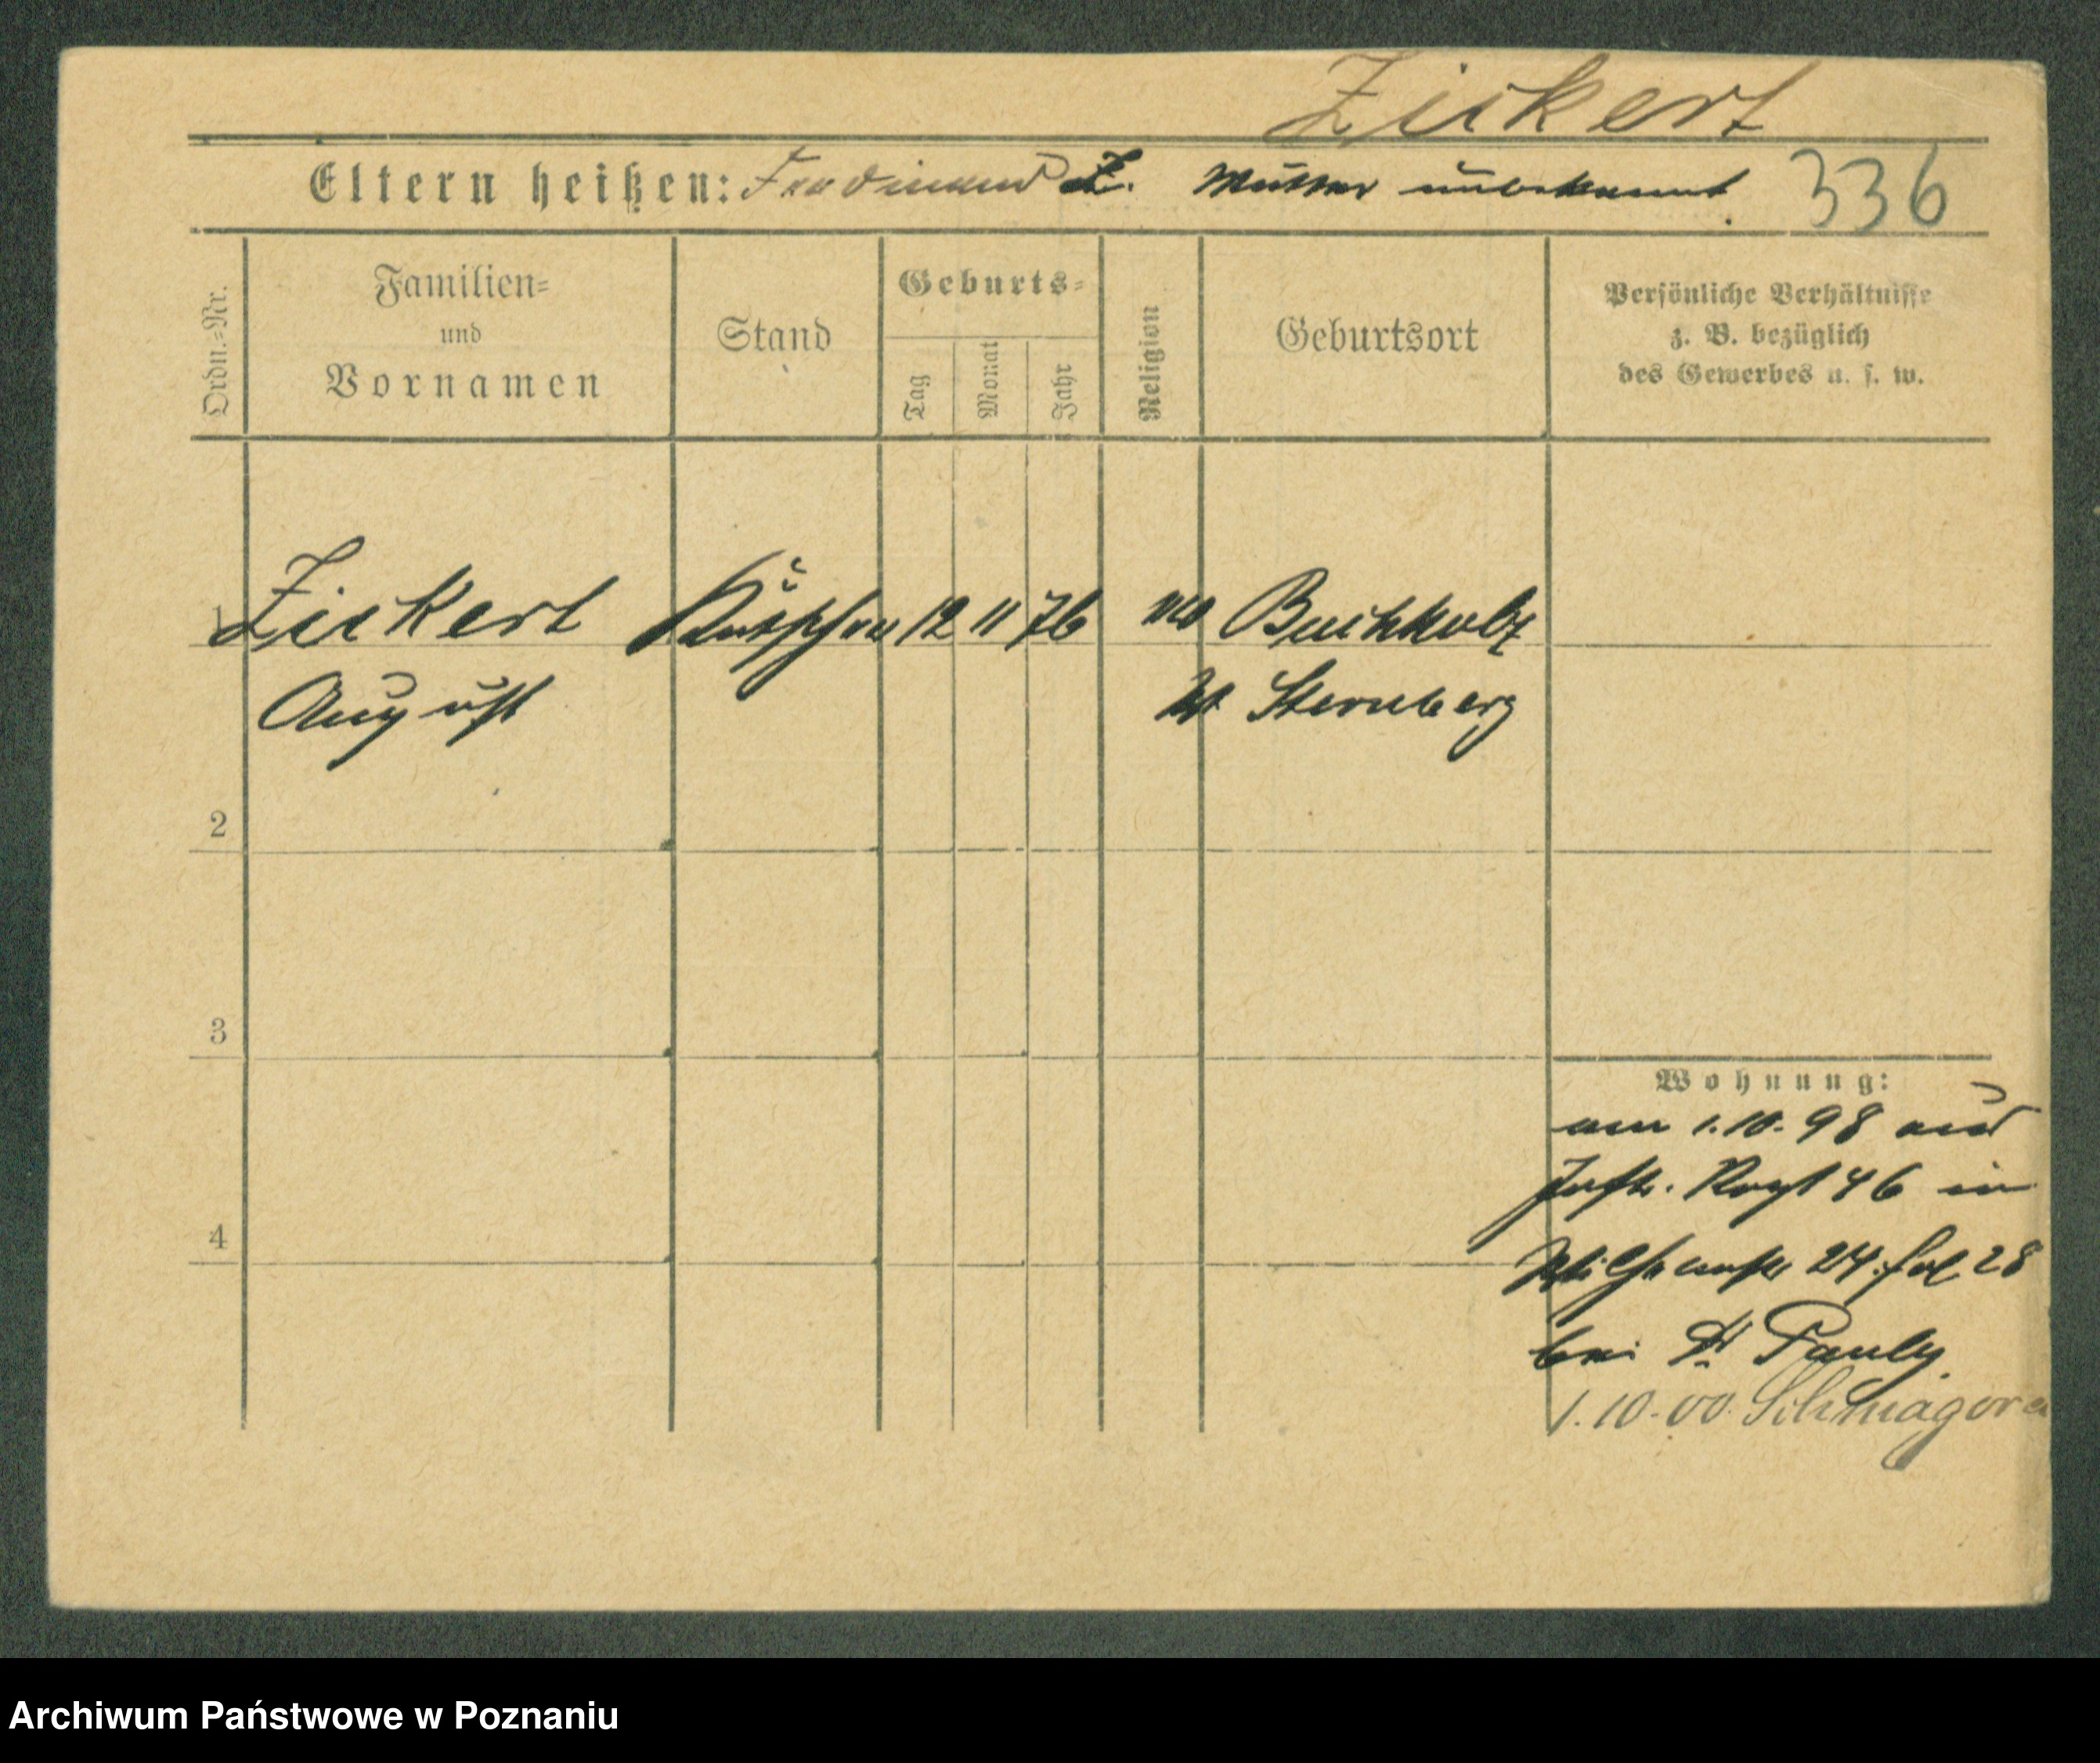 Zickert
Eltern heißen: Ferdinand Z. Mutter unbekannt. 336
Ordn.=Nr.
Familien=
und
Vornamen
Stand
Geburts=
Tag
Monat
Jahr
Religion
Geburtsort
Persönliche Verhältnisse
z. B. bezüglich
des Gewerbes u. s. w.
1 Zickert Kutscher 12 11 76 Buchholz
August Sternberg
2
3
4
Wohnung:
am 1.10.98 aus
Inftr. Regt 46 in
24. fol 28
bei Dr Pauly
1.10.00. Schmagorei
Archiwum Państwowe w Poznaniu